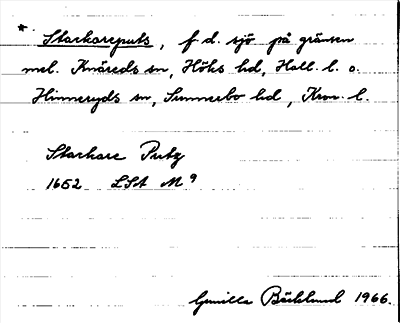 * Stackareputs, f d. sjö på gränsen
mel. Knäreds sn, Höks hd, Hall. l. o.
Hinneryds sn, Sunnerbo hd, Kron. l.
Stackare Putz
1652 LSA M 9
Gunilla Bäcklund 1966.